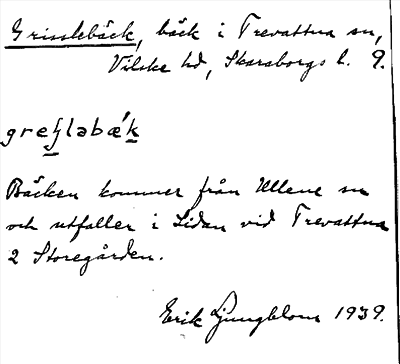 Grisslebäck, bäck i Trevattna sn,
Vilske hd, Skaraborgs l. 9.
Bäcken kommer från Ullene sn
och utfaller i Lidan vid Trevattna
2 Storegården.
Erik Ljungblom 1939.